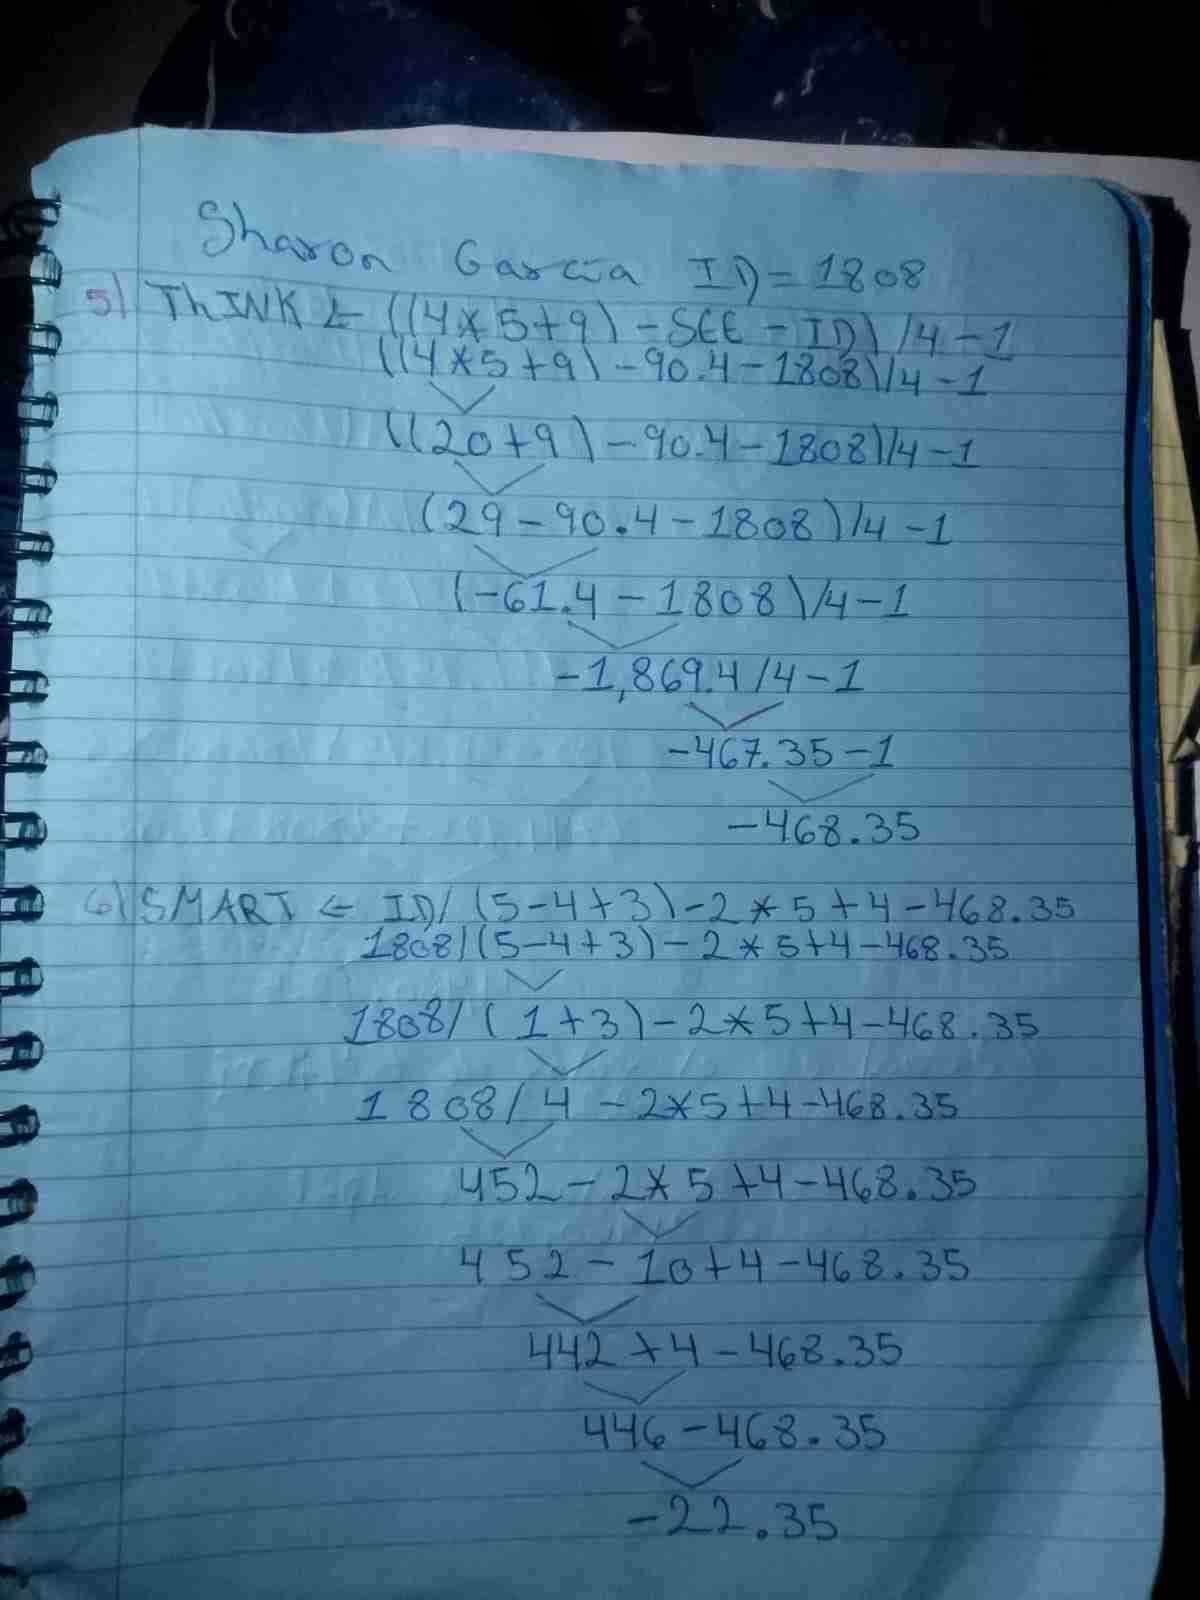 Sharon Garcia ID=1808
5) ThINK ← ((4*5+9)-SEE-ID)/4-1
((4*5+9)-90.4-1808)/4-1
((20+9)-90.4-1808)/4-1
(29-90.4-1808)/4-1
(-61.4-1808)/4-1
-1,869.4/4-1
-467.35-1
-468.35
6) SMART ← ID/(5-4+3)-2*5+4-468.35
1808/(5-4+3)-2*5+4-468.35
1808/(1+3)-2*5+4-468.35
1808/4-2*5+4-468.35
452-2*5+4-468.35
452-10+4-468.35
442+4-468.35
446-468.35
-22.35